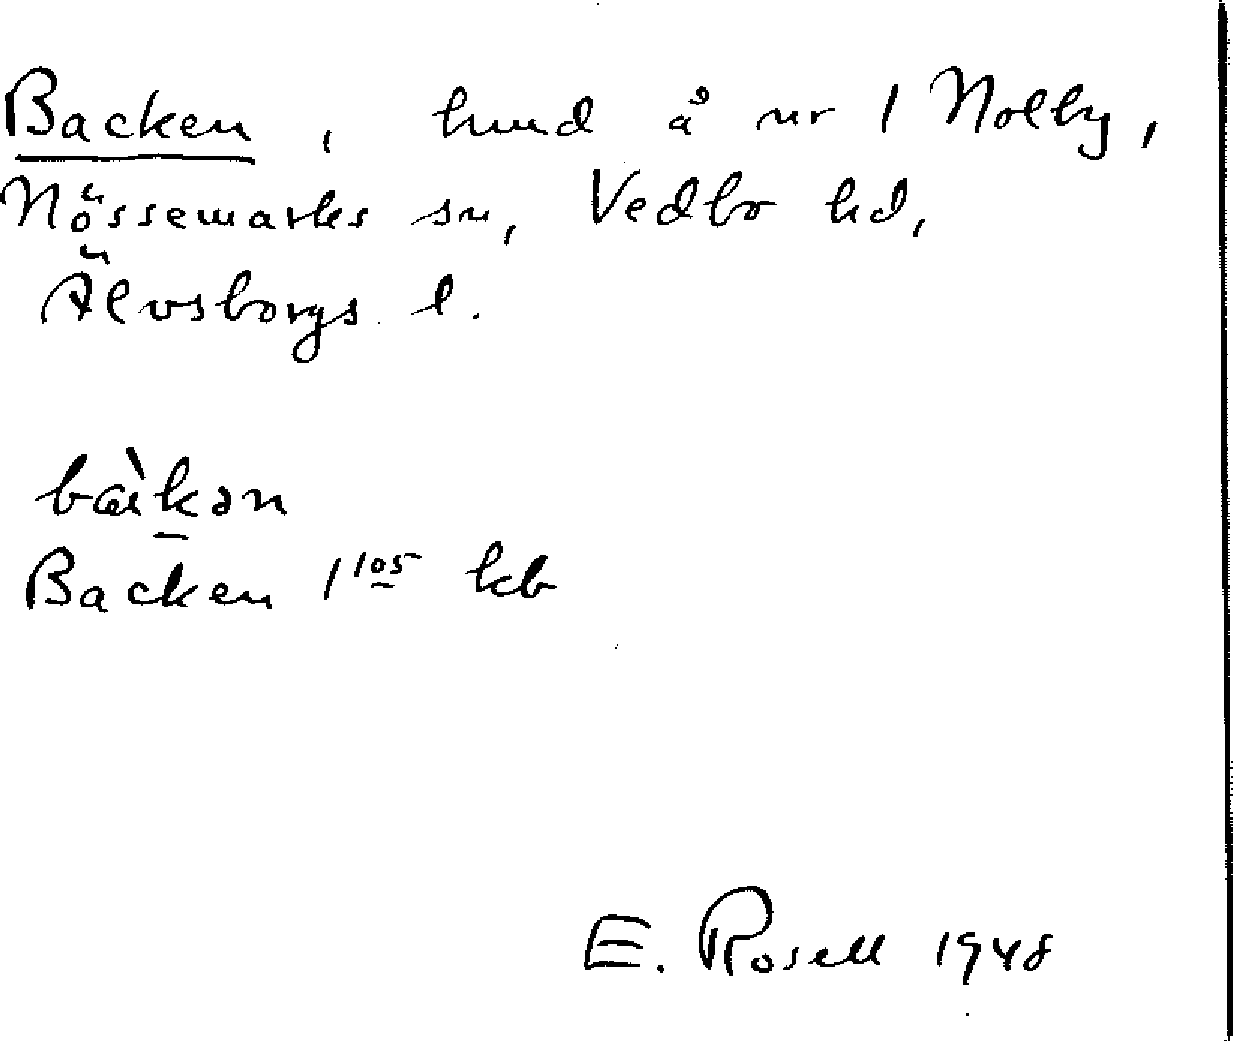 Backen, lund å nr 1 Nolby,
Nössemarks sn, Vedbo hd,
Älvsborgs l.
bàkən
Backen 1¹⁰⁵ kb
E. Rosell 1948